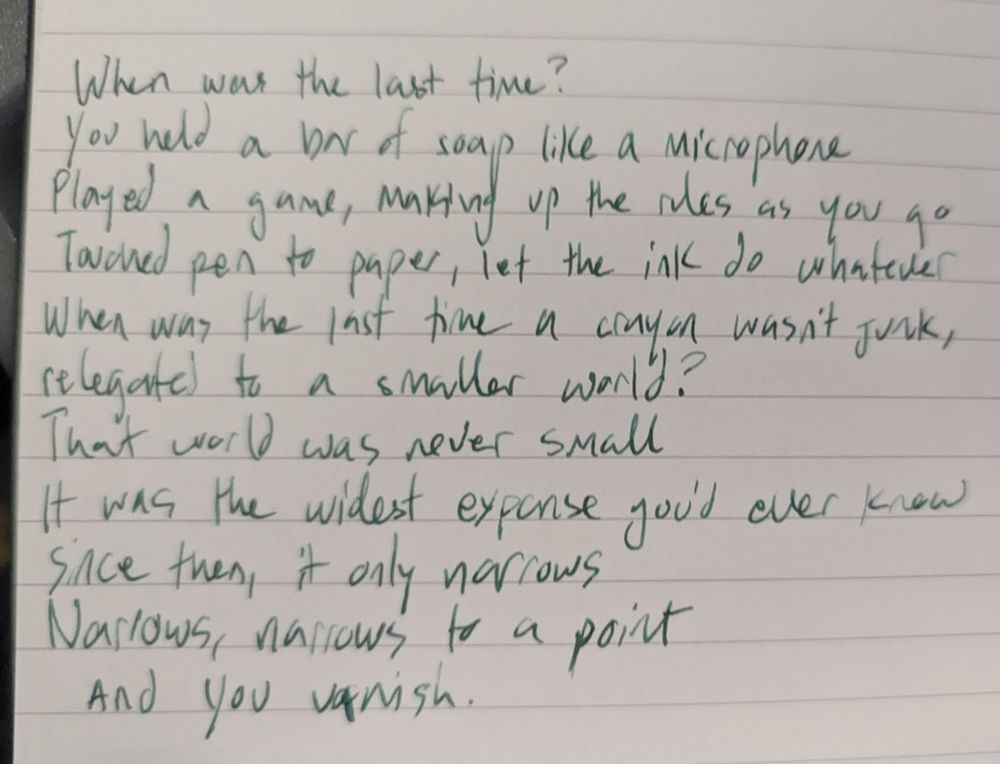 When was the last time?
You held a bar of soap like a microphone
Played a game, making up the rules as you go
Touched pen to paper, let the ink do whatever
When was the last time a crayon wasn't junk,
relegated to a smaller world?
That world was never small
It was the widest expanse you'd ever know
Since then, it only narrows
Narrows, narrows to a point
And you vanish.